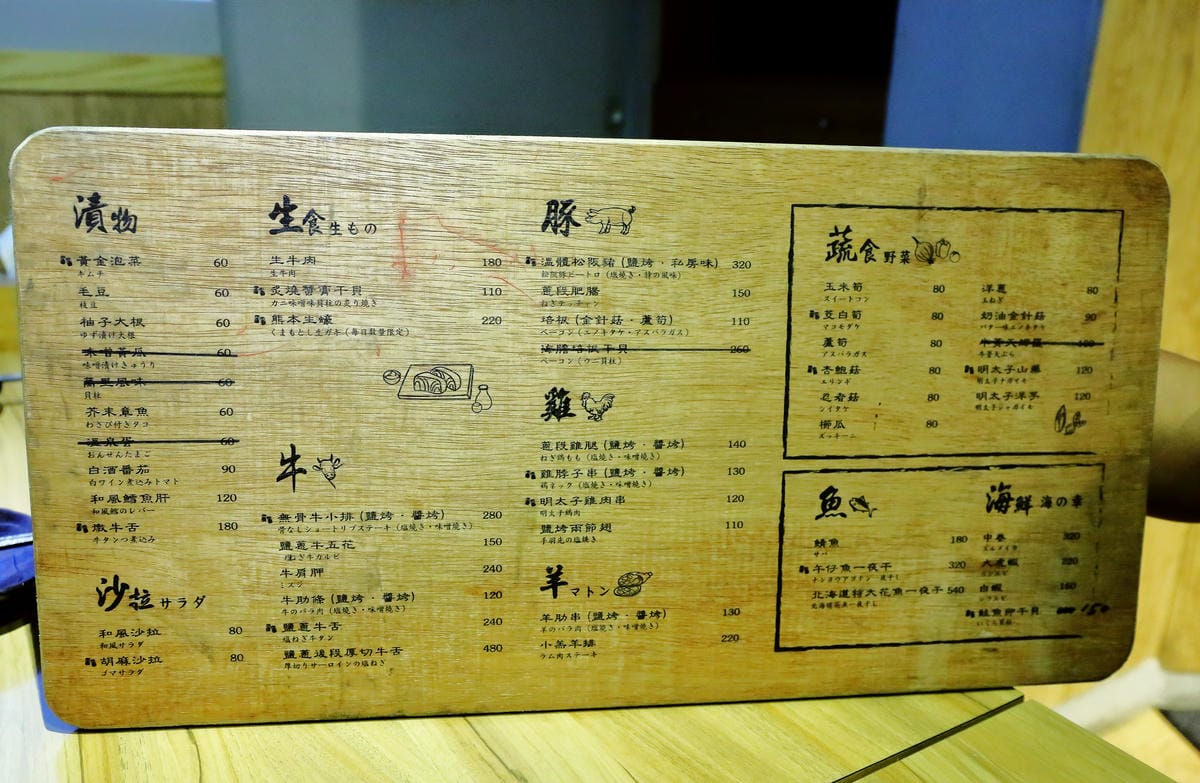 漬物
黃金泡菜 60
キムチ
毛豆 60
枝豆
柚子大根 60
ゆず漬け大根
味噌黃瓜 60
味噌漬けきゅうり
萬里風味 60
貝柱
芥末章魚 60
わさび付きタコ
溫泉蛋 60
おんせんたまご
白酒番茄 90
白ワイン煮込みトマト
和風鱈魚肝 120
和風鱈のレバー
燉牛舌 180
牛タンつ煮込み
沙拉 サラダ
和風沙拉 80
和風サラダ
胡麻沙拉 80
ゴマサラダ
生食 生もの
生牛肉 180
生牛肉
炙燒蟹膏干貝 110
カニ味噌味貝柱の炙り焼き
熊本生蠔 220
くまもとし生ガキ(毎日数量限定)
牛
無骨牛小排 (鹽烤·醬烤) 280
骨なしショートリブステーキ(塩焼き·味噌焼き)
鹽蔥牛五花 150
塩ねぎ牛カルビ
牛肩胛 240
ミスジ
牛肋條 (鹽烤·醬烤) 120
牛のバラ肉(塩焼き·味噌焼き)
鹽蔥牛舌 240
塩ねぎ牛タン
鹽蔥後段厚切牛舌 480
厚切りサーロインの塩ねぎ
豚
溫體松阪豬 (鹽烤·私房味) 320
松阪豚ピートロ(塩焼き·特の風味)
蔥段肥腸 150
ねぎテッチャン
培根 (金針菇·蘆筍) 110
ベーコン(エノキタケ·アスパラガス)
海膽培根干貝 260
ベーコン(ウニ貝柱)
雞
蔥段雞腿 (鹽烤·醬烤) 140
ねぎ鶏もも(塩焼き·味噌焼き)
雞脖子串 (鹽烤·醬烤) 130
鶏ネック(塩焼き·味噌焼き)
明太子雞肉串 120
明太子鶏肉
鹽烤兩節翅 110
手羽先の塩焼き
羊 マトン
羊肋串 (鹽烤·醬烤) 130
羊のバラ肉(塩焼き·味噌焼き)
小羔羊排 220
ラム肉ステーキ
蔬食 野菜
玉米筍 80
スイートコン
茭白筍 80
マコモダケ
蘆筍 80
アスパラガス
杏鮑菇 80
エリンギ
忍者菇 80
シイタケ
櫛瓜 80
ズッキーニ
洋蔥 80
玉ねぎ
奶油金針菇 90
バター味エノキタケ
牛蒡天婦羅
牛蒡天ぷら
明太子山藥 120
明太子ナガイモ
明太子洋芋 120
明太子ジャガイモ
魚
鯖魚 180
サバ
午仔魚一夜干 320
北海道特大花魚一夜干 540
海鮮 海の幸
中卷 320
スルメイカ
大虎蝦 220
白蝦 160
鮭魚卵干貝 150